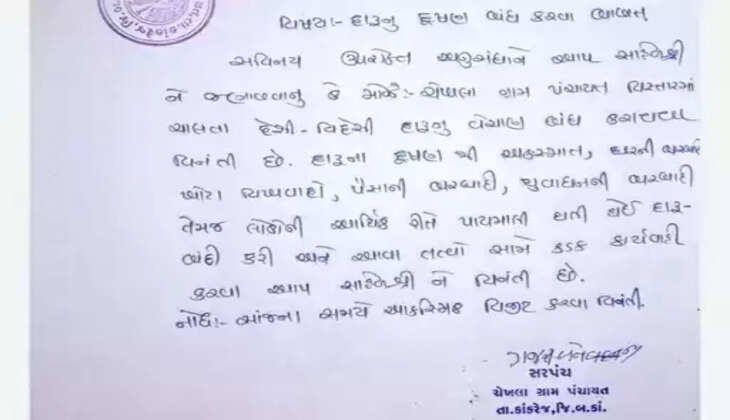 વિષય:- દારૂનુ દૂષણ બંધ કરવા બાબત
સવિનય ઉપરોક્ત અનુસંધાને આપ સાહેબશ્રી
ને જણાવવાનુ કે મોજે:- ચેખલા ગ્રામ પંચાયત વિસ્તારમાં
ચાલતા દેશી-વિદેશી દારૂનુ વેચાણ બંધ કરાવવા
વિનંતી છે. દારૂના દૂષણ થી અકસ્માત, ઘરની
ખોટા વિખવાદો, પૈસાની બરબાદી, યુવાધનની બરબાદી
તેમજ લોકોની આર્થિક રીતે પાયમાલી થતી હોઈ દારૂ-
બંધી કરી અને આવા તત્વો સામે કડક કાર્યવાહી
કરવા આપ સાહેબશ્રી ને વિનંતી છે.
નોંધ:- સાંજના સમયે આકસ્મિક વિજીટ કરવા વિનંતી.
સરપંચ
ચેખલા ગ્રામ પંચાયત
તા.કાંકરેજ,જિ.બ.કાં.